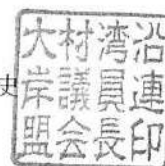 史
大村湾沿
岸議員連
盟会長印